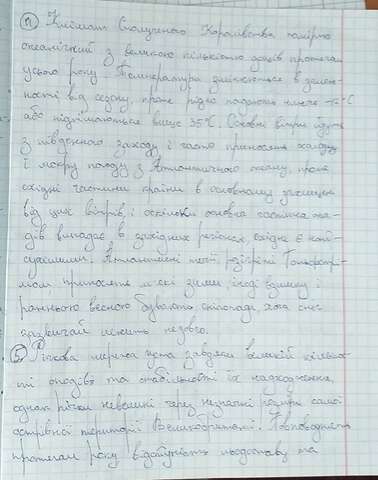 ④ Клімат Сполученого Королівства помірно
океанічний з великою кількістю дощів протягом
усього року. Температура змінюється в залеж-
ності від сезону, проте рідко падають нижче -10°С
або піднімаються вище 35°С. Основні вітри йдуть
з південного заходу і часто приносять холодну
і мокру погоду з Атлантичного океану, проте
східні частини країни в основному захищені
від цих вітрів, і оскільки основна частина опа-
дів випадає в західних регіонах, східні є най-
сухішими. Атлантичні течії, розігріті Гольфстрі-
мом, приносять м'які зими, іноді взимку і
ранньою весною бувають снігопади, хоча сніг
зазвичай лежить недовго.
⑤ Річкова мережа густа завдяки великій кілько-
сті опадів та стабільності їх надходження,
однак річки невеликі через незначні розміри самої
острівної території Великобританії. Повноводність
протягом року відсутність льодоставу та